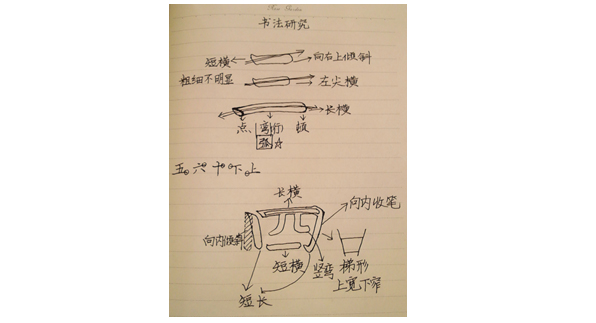 书法研究
短横 向右上倾斜
粗细不明显 左尖横
长横
点 弯行 顿
五。六 十 下。上
长横
向内收笔
四
向内倾斜
短横 竖弯 梯形
上宽下窄
短 长